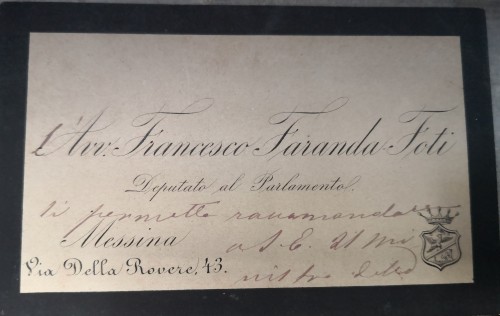 L'Avv. Francesco Faranda Foti
Deputato al Parlamento.
Si permette raccomandare
Messina
a S. E. Il Mi
Via Della Rovere, 43.
nistro